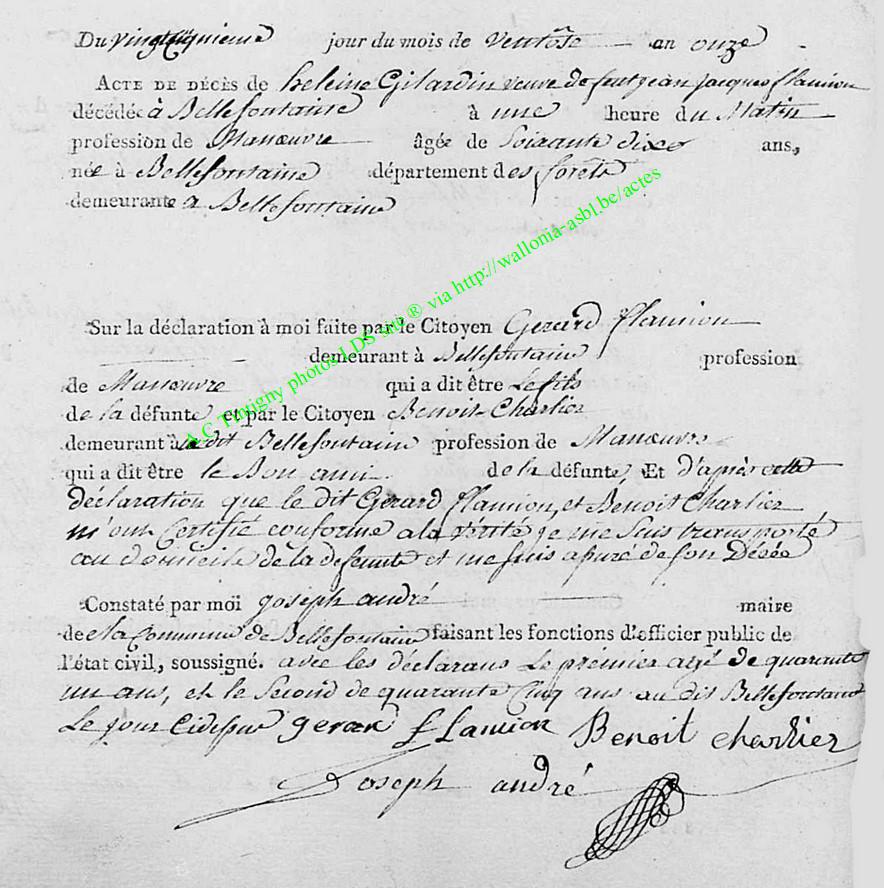 Du vingtcinquieme jour du mois de ventose an onze
ACTE DE DÉCÈS de heleine Gilardin veuve de feut jean jacques flamion
décédée à Bellefontaine à une heure du Matin
profession de Manœuvre âgée de Soixante dixe ans,
née à Bellefontaine département des forêts
demeurante a Bellefontaine
A.C Tintigny photos LDS snu ® via http://wallonia-asbl.be/actes
Sur la déclaration à moi faite par le Citoyen Gerard flamion
demeurant à Bellefontaine profession
de Manœuvre qui a dit être le fils
de la défunte et par le Citoyen Benoit Charlier
demeurant à dit Bellefontaine profession de Manœuvre
qui a dit être le Bon ami de la défunte, Et d'après cette
déclaration que le dit Gerard flamion, et Benoit Charlier
m'ont Certifié conforme a la vérité je me suis transporté
au domicile de la defunte et me suis apuré de son Décée
Constaté par moi joseph andré maire
de la Commune de Bellefontaine faisant les fonctions d'officier public de
l'état civil, soussigné. avec les déclarans le prémier agé de quarante
un ans, et le Second de quarante Cinq ans au dit Bellefontaine
Le jour Cidessus gerar flamion Benoit charlier
Joseph andré